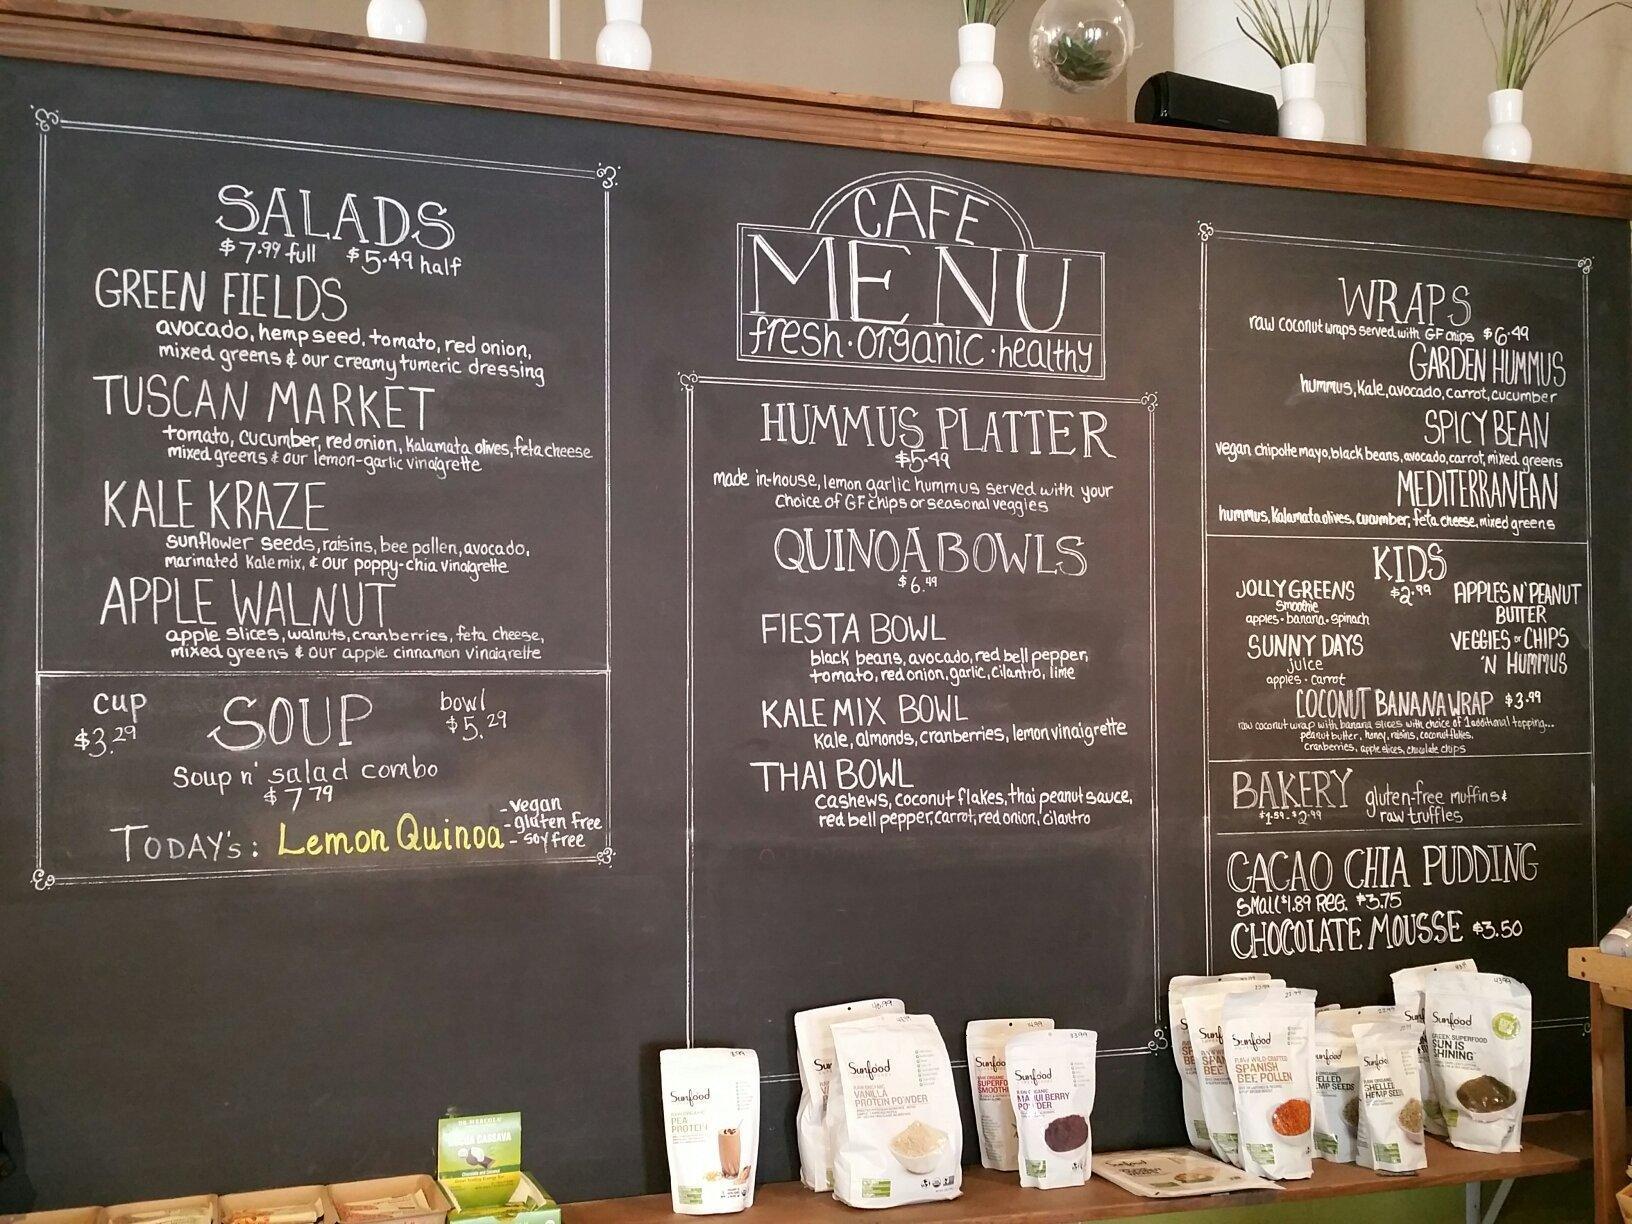 SALADS
$7.99 full $5.49 half
GREEN FIELDS
avocado, hemp seed, tomato, red onion,
mixed greens & our creamy tumeric dressing
TUSCAN MARKET
tomato, cucumber, red onion, Kalamata olives, feta cheese
mixed greens & our lemon-garlic vinaigrette
KALE KRAZE
sunflower seeds, raisins, bee pollen, avocado,
marinated Kale mix, & our poppy-chia vinaigrette
APPLE WALNUT
apple slices, walnuts, cranberries, feta cheese,
mixed greens & our apple cinnamon vinaigrette
cup SOUP bowl
$3.29 $5.29
Soup n' salad combo
$7.79
TODAY's: Lemon Quinoa
- vegan
- gluten free
- soy free
CAFE
MENU
fresh · organic · healthy
HUMMUS PLATTER
$5.49
made in-house, lemon garlic hummus served with your
choice of GF chips or seasonal veggies
QUINOA BOWLS
$6.49
FIESTA BOWL
black beans, avocado, red bell pepper,
tomato, red onion, garlic, cilantro, lime
KALE MIX BOWL
Kale, almonds, cranberries, lemon vinaigrette
THAI BOWL
cashews, coconut flakes, thai peanut sauce,
red bell pepper, carrot, red onion, cilantro
WRAPS
raw coconut wraps served with GF chips $6.49
GARDEN HUMMUS
hummus, Kale, avocado, carrot, cucumber
SPICY BEAN
vegan chipotle mayo, black beans, avocado, carrot, mixed greens
MEDITERRANEAN
hummus, Kalamata olives, cucumber, feta cheese, mixed greens
KIDS
$2.99
JOLLY GREENS
Smoothie
apples · banana · spinach
SUNNY DAYS
juice
apples · carrot
APPLES N' PEANUT
BUTTER
VEGGIES or CHIPS
'N HUMMUS
COCONUT BANANA WRAP $3.99
raw coconut wrap with banana slices with choice of 1 additional topping...
peanut butter, honey, raisins, coconut flakes,
cranberries, apple slices, chocolate chips
BAKERY gluten-free muffins &
$1.59-$2.99 raw truffles
CACAO CHIA PUDDING
Small $1.89 REG. $3.75
CHOCOLATE MOUSSE $3.50
Sunfood
PEA
PROTEIN
Sunfood
VANILLA
PROTEIN POWDER
Sunfood
MAQUI BERRY
POWDER
Sunfood
SPANISH
BEE POLLEN
Sunfood
SHELLED
HEMP SEEDS
Sunfood
SUN IS
SHINING
CASSAVA